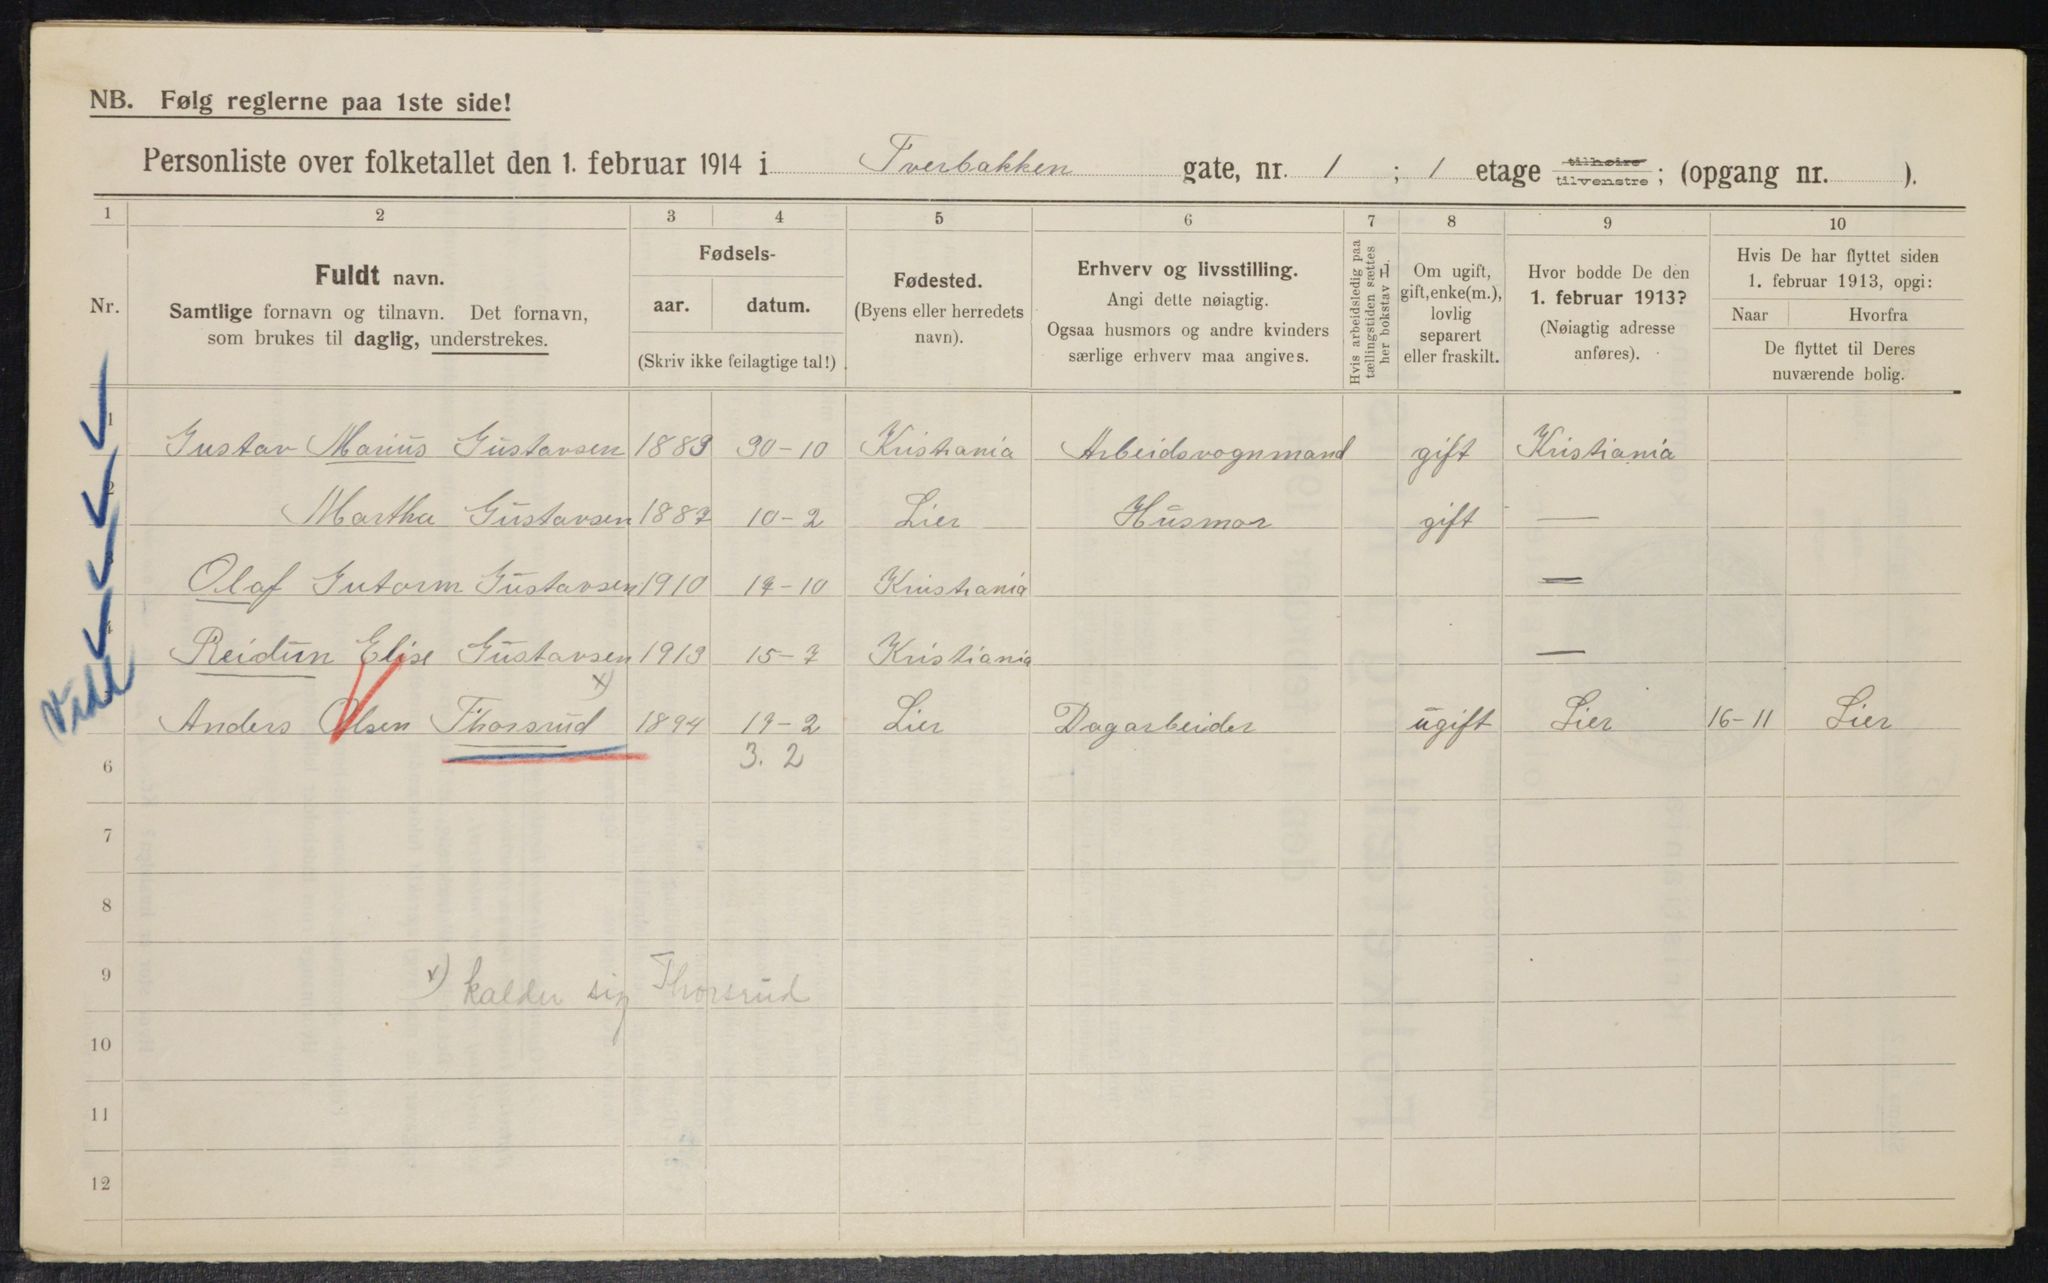 NB. Følg reglerne paa 1ste side!
Personliste over folketallet den 1. februar 1914 i Tverbakken gate, nr. 1 ; 1 etage tilhøire tilvenstre ; (opgang nr. ).
1 2 3 4 5 6 7 8 9 10
Nr.
Fuldt navn.
Samtlige fornavn og tilnavn. Det fornavn,
som brukes til daglig, understrekes.
Fødsels-
aar. datum.
(Skriv ikke feilagtige tal!)
Fødested.
(Byens eller herredets
navn).
Erhverv og livsstilling.
Angi dette nøiagtig.
Ogsaa husmors og andre kvinders
særlige erhverv maa angives.
Hvis arbeidsledig paa
tællingstiden sættes
her bokstav H.
Om ugift,
gift, enke(m.),
lovlig
separert
eller fraskilt.
Hvor bodde De den
1. februar 1913?
(Nøiagtig adresse
anføres).
Hvis De har flyttet siden
1. februar 1913, opgi:
Naar Hvorfra
De flyttet til Deres
nuværende bolig.
1 Gustav Marius Gustavsen 1889 30-10 Kristiania Arbeidsvognmand gift Kristiania
2 Martha Gustavsen 1887 10-2 Lier Husmor gift —
3 Olaf Gutorm Gustavsen 1910 17-10 Kristiania —
4 Reidun Elise Gustavsen 1913 15-7 Kristiania —
Anders Olsen Thorsrud x) 1894 19-2 Lier Dagarbeider ugift Lier 16-11 Lier
6 3. 2
7
8
9
x) kalder sig Thorsrud
10
11
12